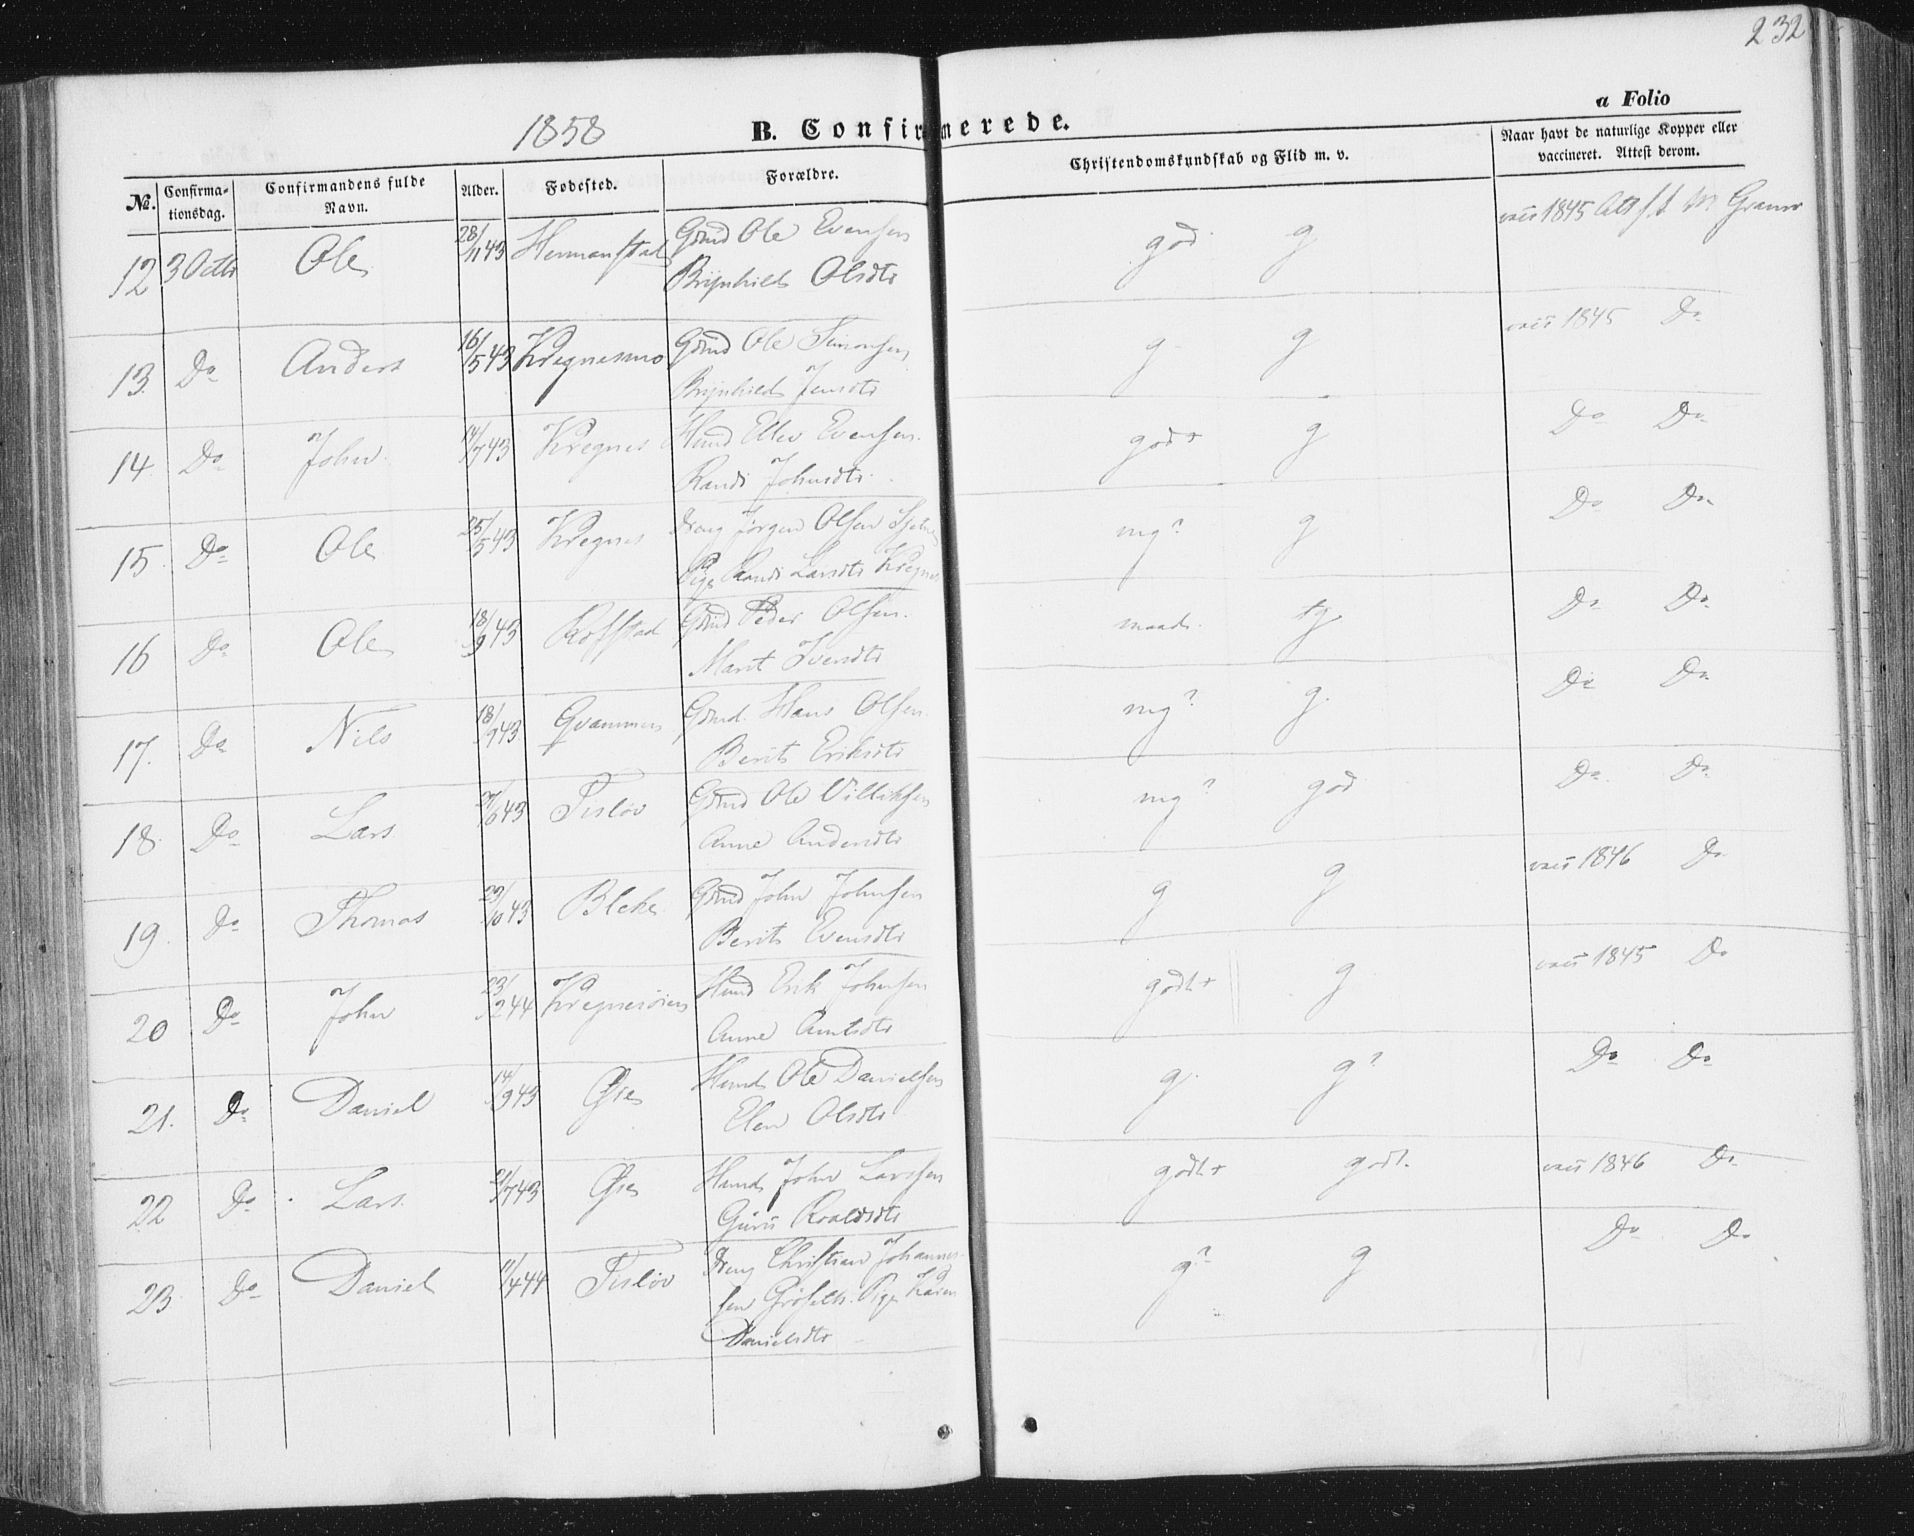 232
a Folio
1858
B. Confirmerede.
№.
Confirma-
tionsdag.
Confirmandens fulde
Navn.
Alder.
Fødested.
Forældre.
Christendomskundskab og Flid m. v.
Naar havt de naturlige Kopper eller
vaccineret. Attest derom.
12 3 Octbr Ole 28/11 43 Hermanstad Gmd Ole Evensen god g vacc 1845 Att f. M
Brynhild Olsdtr
13. Do Anders 16/5 43 Kregnesmo Gmd Ole Simonsen g g vacc 1845 Do
Brynhild Jensdtr
14. Do John 14/7 43 Kregnes Huusmd Ellev Evensen. god + g Do Do
Randi Johnsdtr.
15. Do Ole 25/5 43 Kregnes Ung Jørgen Olsen mg? g Do Do
Pige Randi Larsdtr Kregnes
16 Do Ole 18/9 43 Rofstad Gmd Peder Olsen. maad. tg Do Do
Marit Iversdtr
17. Do Nils 18/9 43 Qvammen Gmd. Hans Olsen mg? g. Do Do
Berit Eriksdtr
18. Do Lars 43 Tisløv Gmd Ole Villiksen mg? god Do Do
Anne Andersdtr
19. Do Thomas 29/10 43 Bleke Gmd John Johnsen g g vacc 1846 Do
Berit Evensdtr
20 Do John 23/2 44 Kregnesøien Hmd Erik Johnsen godt + g vacc 1845 Do
Anne Arntsdtr
21. Do Daniel 14/9 43 Øie Hmd Ole Danielsen g. g? Do Do
Elen Olsdtr
22 Do Lars. 21/7 43 Øie Hmd John Larssen godt + godt. vacc 1846 Do
Guru Roaldsdtr
23. Do Daniel 11/4 44 Tisløv Ung Christian Johannes- g? g Do Do
sen Pige Karen
Danielsdtr